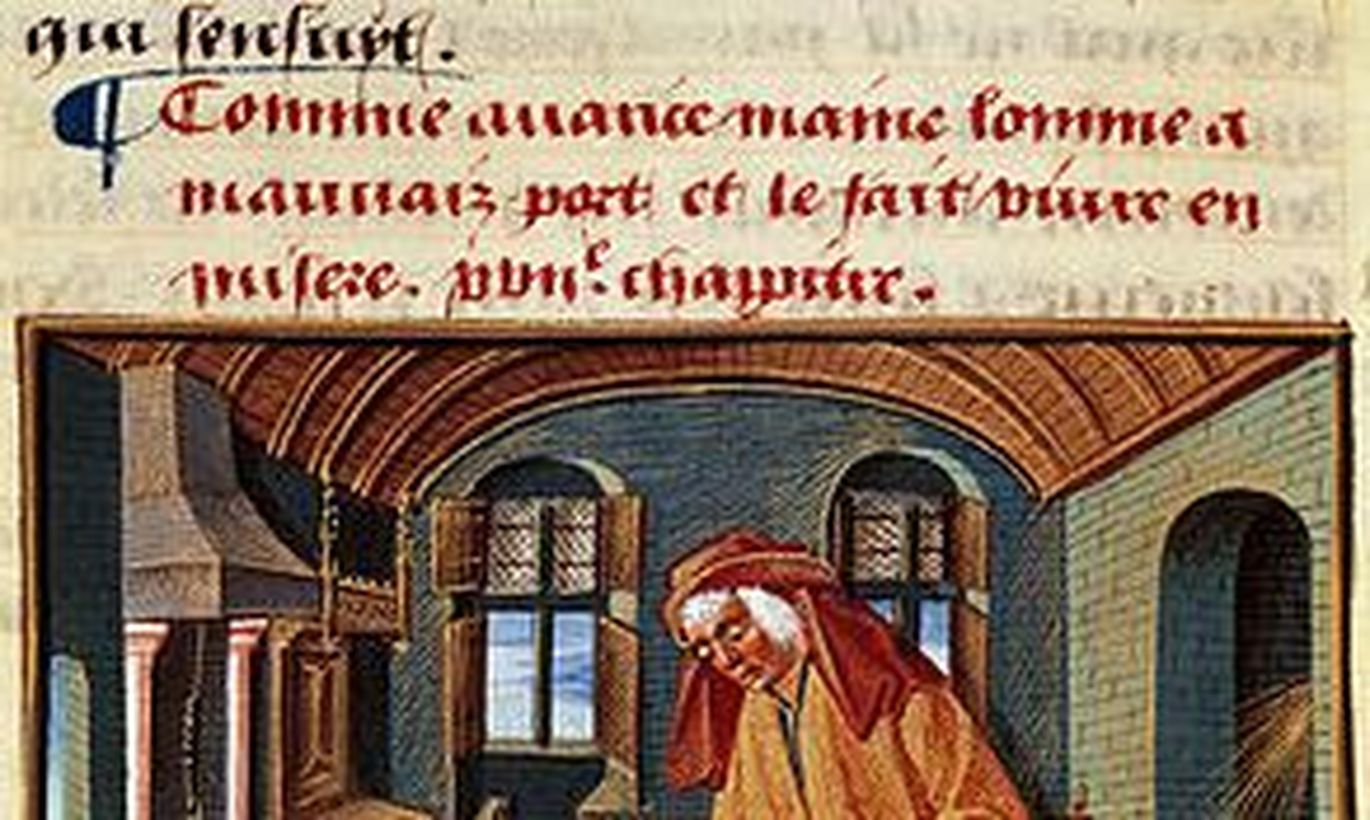 qui sensuyt.
Comme auarice maine lomme a
mauuaiz port et le fait viure en
misere. xviiᵉ. chapitre.